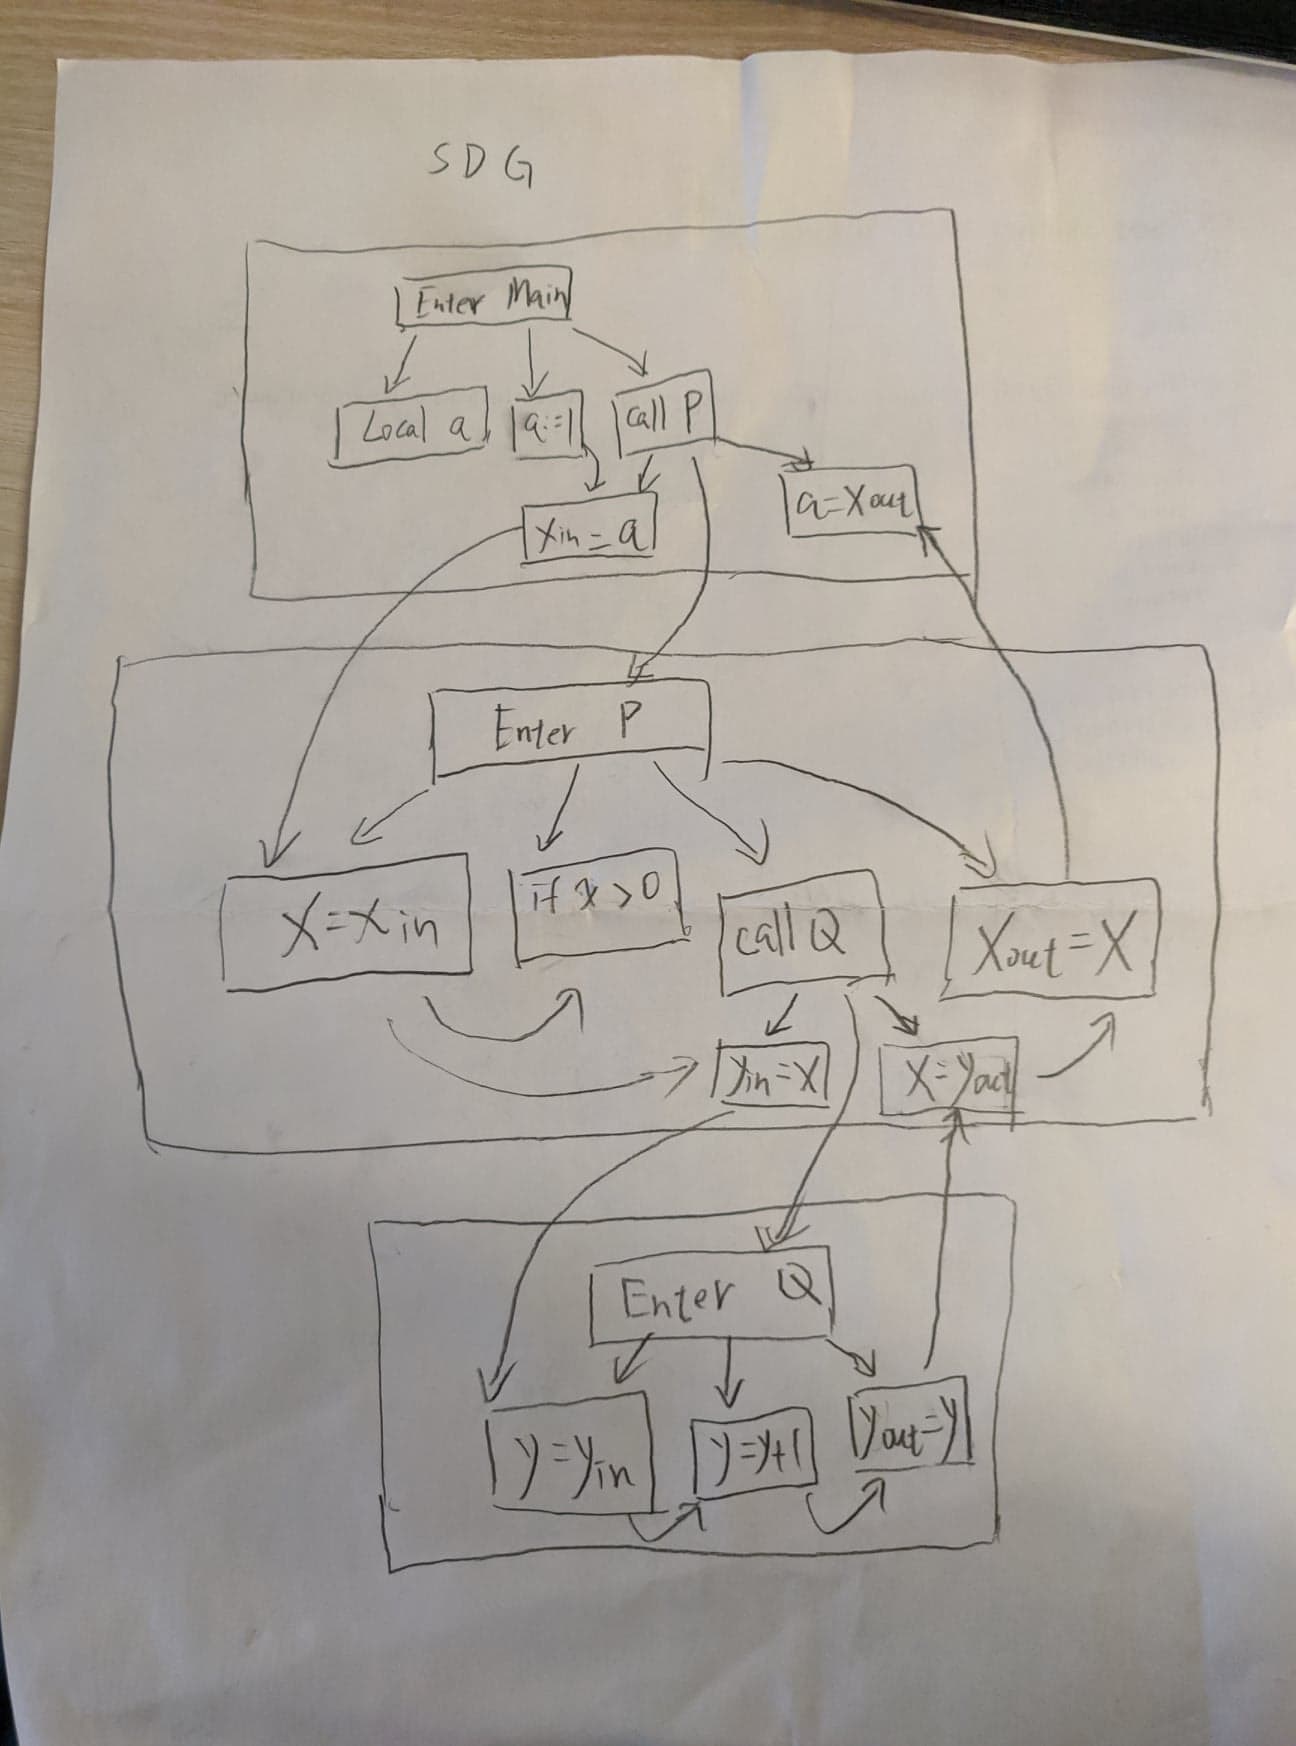 SDG
Enter Main
Local a
a:=1
call P
Xin = a
a=Xout
Enter P
X=Xin
if x>0
call Q
Xout=X
yin=X
X=yout
Enter Q
y=yin
y=y+1
yout=y